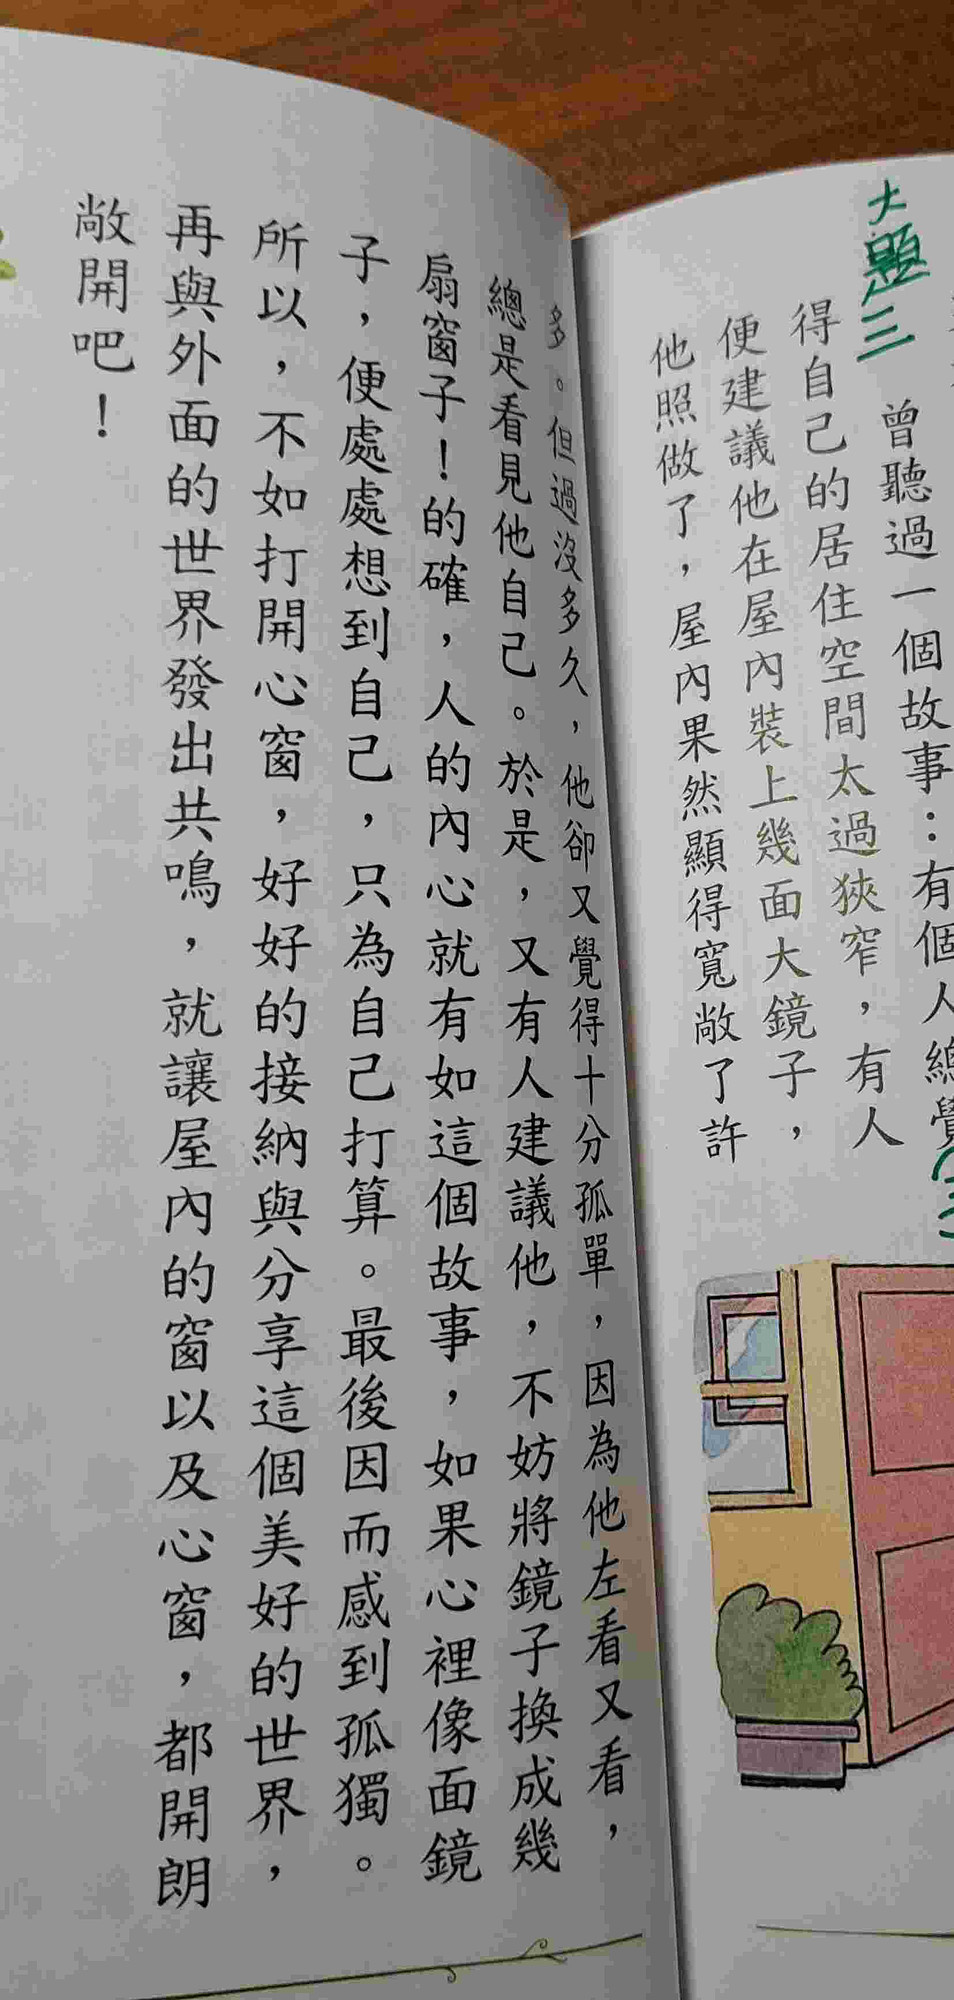 大題三
曾聽過一個故事：有個人總覺
得自己的居住空間太過狹窄，有人
便建議他在屋內裝上幾面大鏡子，
他照做了，屋內果然顯得寬敞了許
多。但過沒多久，他卻又覺得十分孤單，因為他左看又看，
總是看見他自己。於是，又有人建議他，不妨將鏡子換成幾
扇窗子！的確，人的內心就有如這個故事，如果心裡像面鏡
子，便處處想到自己，只為自己打算。最後因而感到孤獨。
所以，不如打開心窗，好好的接納與分享這個美好的世界，
再與外面的世界發出共鳴，就讓屋內的窗以及心窗，都開朗
敞開吧！